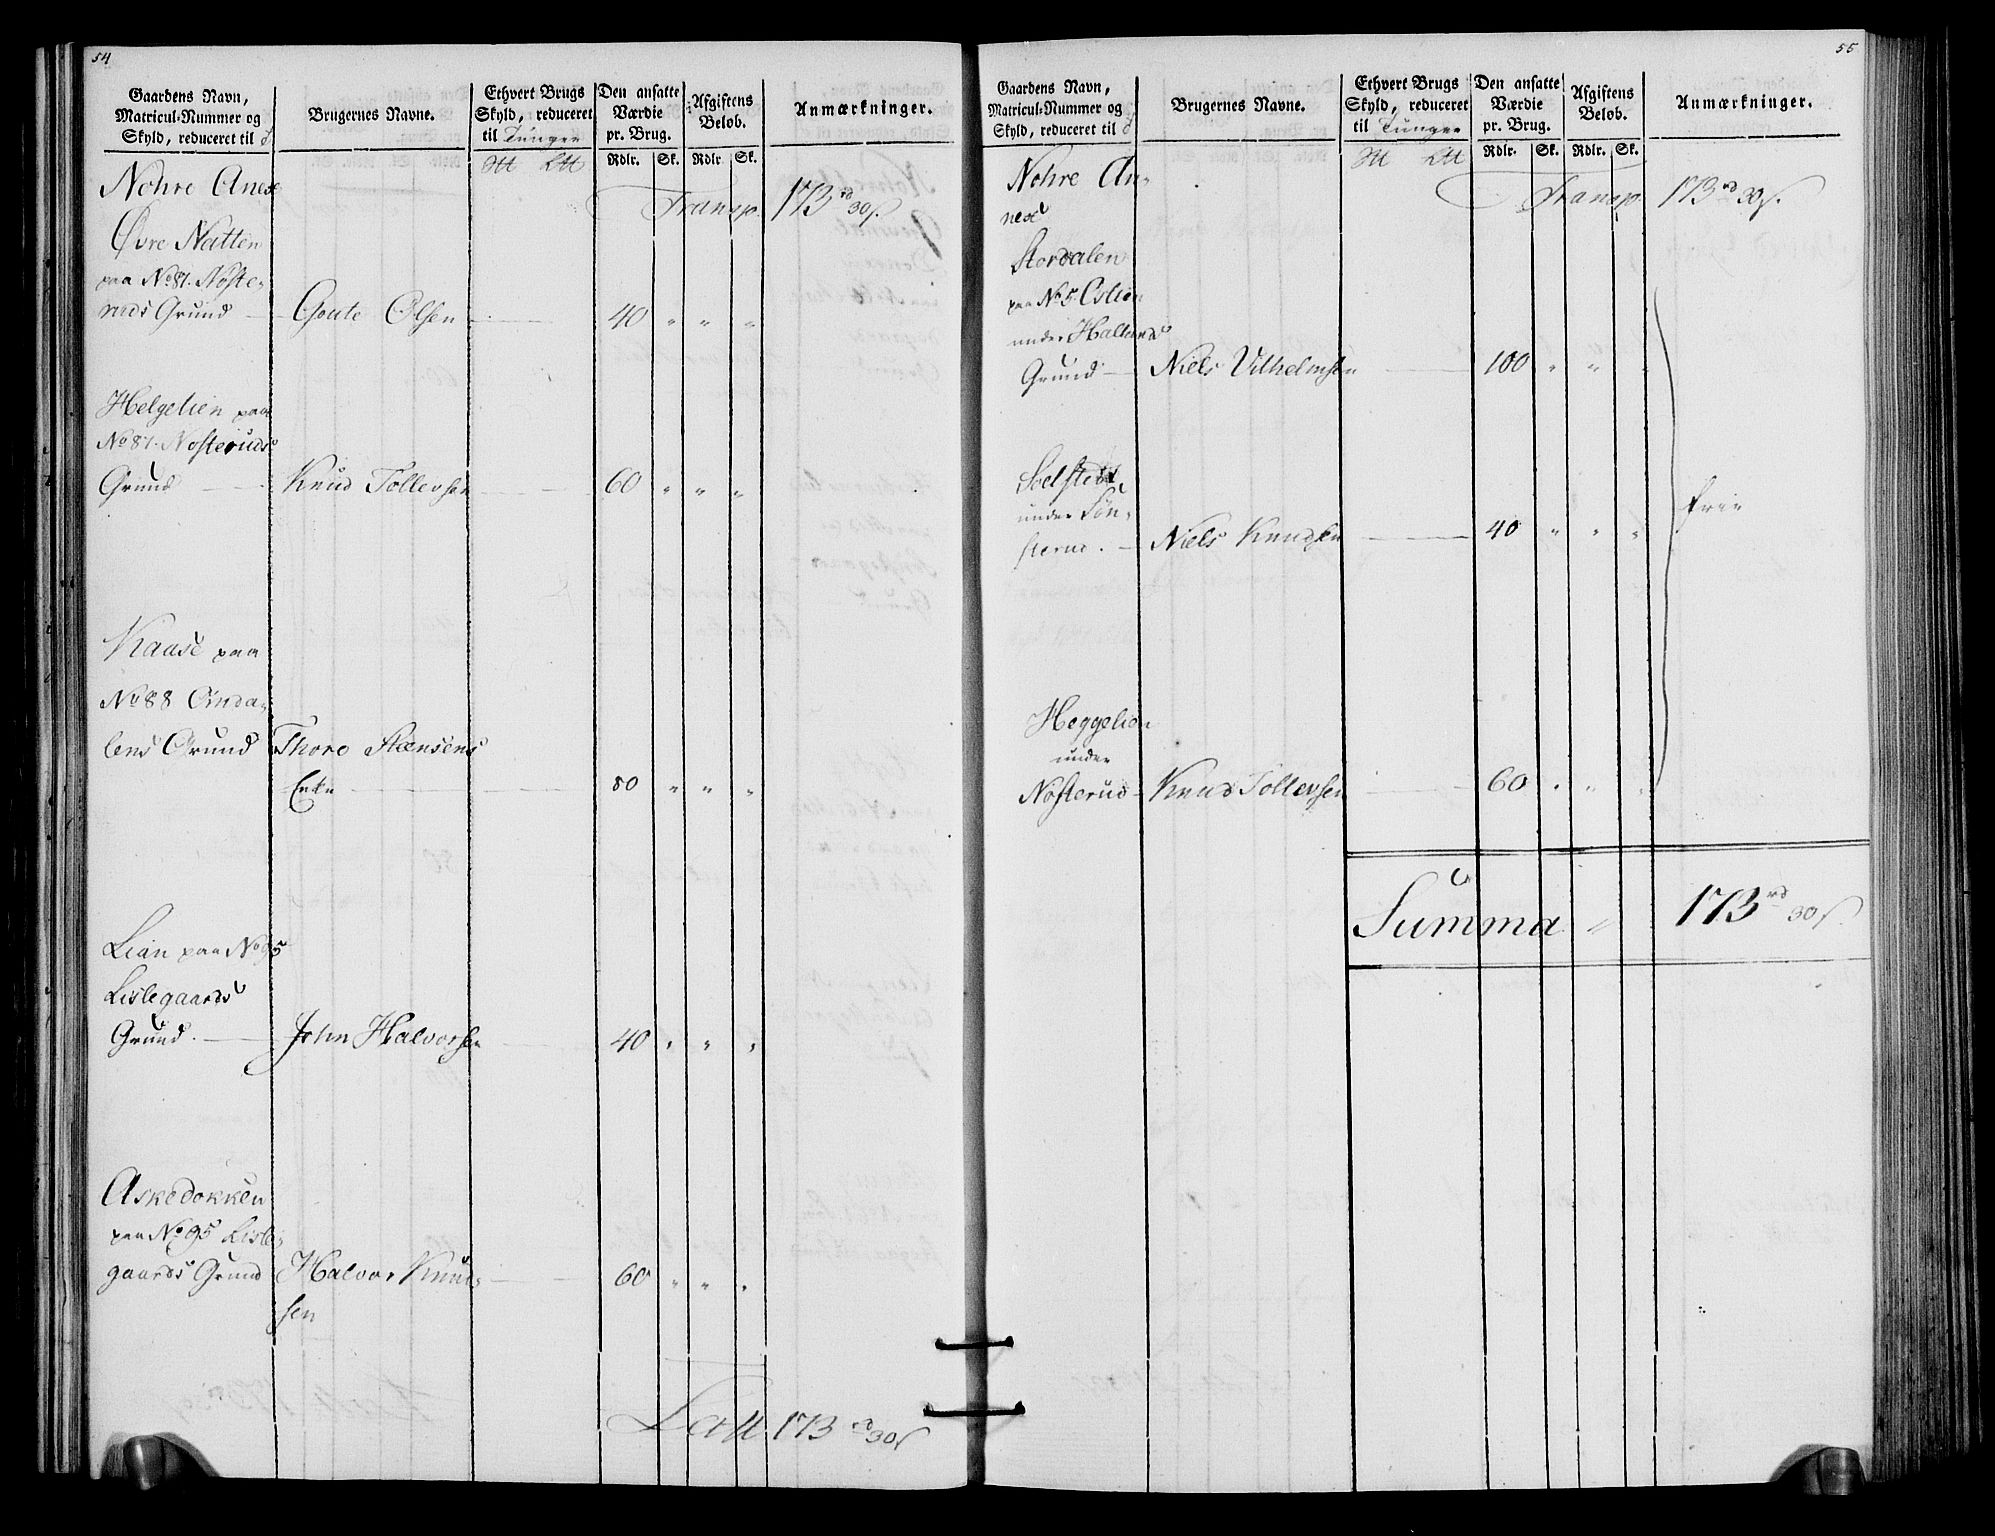 54
Gaardens Navn,
Matricul-Nummer og
Skyld, reduceret til
Brugernes Navne.
Ethvert Brugs
Skyld, reduceret
til Tunger
Den ansatte
Værdie
pr. Brug.
Rdlr. Sk.
Afgiftens
Beløb.
Rdlr. Sk.
Anmærkninger.
Nohre Anexe
Transp. 173 rd 30 s.
Øvre Natten
paa No 87. Nøste-
ruds Grund Goute Olsen 40 " " "
Helgelien paa
No 87. Nosteruds
Grund Knud Tollevsen 60 " " "
Kaase paa
No 88 Omda-
lens Grund Thore Steensens
Enke 80 " " "
Lian paa No 95
Lislegaards
Grund. John Halvorsen 40 " " "
Askedokken
paa No 95 Lisle-
gaards Grund Halvor Knud-
sen 60 " " "
Latt 173 rd 30 s
55
Gaardens Navn,
Matricul-Nummer og
Skyld, reduceret til
Brugernes Navne.
Ethvert Brugs
Skyld, reduceret
til Tunger
Den ansatte
Værdie
pr. Brug.
Rdlr. Sk.
Afgiftens
Beløb.
Rdlr. Sk.
Anmærkninger.
Nohre An-
nex
Transp. 173 rd 30 s.
Stordalen
paa No 5
under
Grund Niels Vilhelmsen 100 " "
under Søn-
sterud. Niels Knudsen 40 " " " frie
Heggelien
under
Nøsterud Knud Tollevsen 60 " "
Summa " 173 rd 30 s